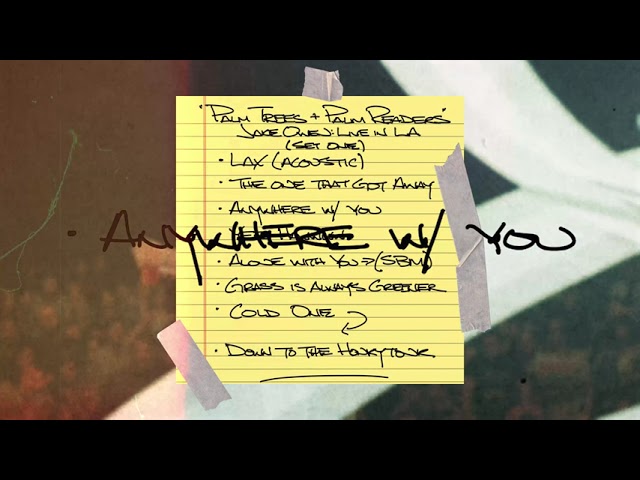 "PALM TREES + PALM READERS"
JAKE OWEN: LIVE IN LA
(SET ONE)
• LAX (ACOUSTIC)
• THE ONE THAT GOT AWAY
• ANYWHERE W/ YOU
• ANYWHERE W/ YOU
• ALONE WITH YOU => (SBM)
• GRASS IS ALWAYS GREENER
• COLD ONE
• DOWN TO THE HONKYTONK